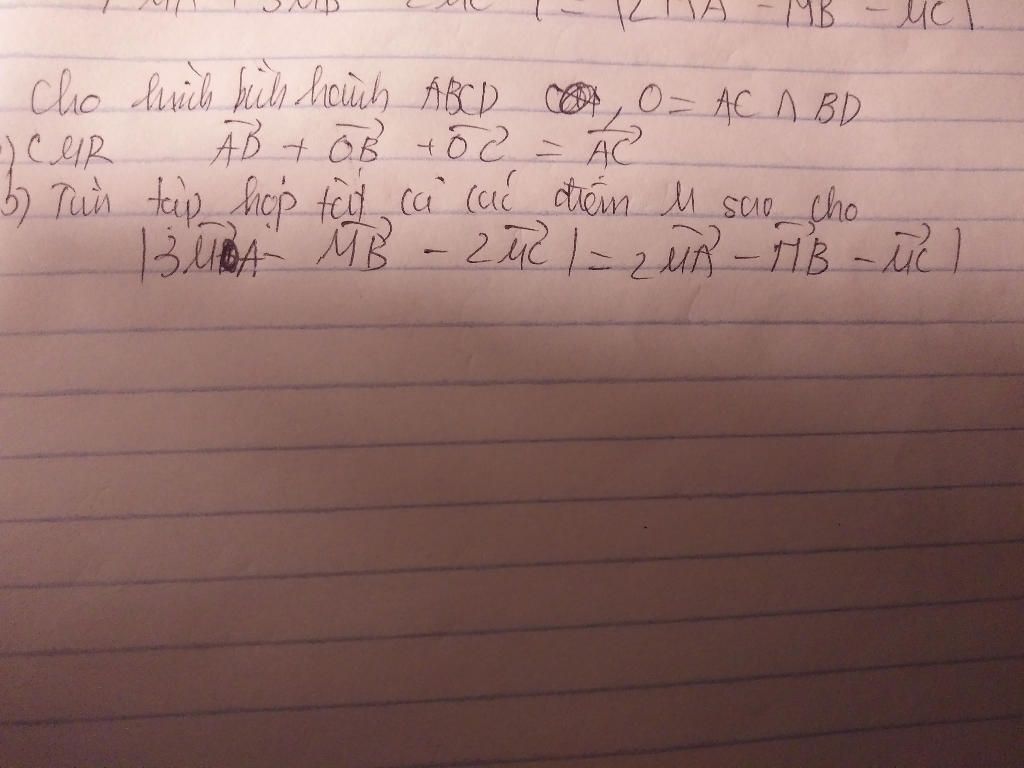 MA + 3MB 2MC | = |2MA - MB - MC|
Cho hình bình hành ABCD , O = AC ∩ BD
) CMR AB + OB + OC = AC
b) Tìm tập hợp tất cả các điểm M sao cho
|3MA - MB - 2MC| = 2MA - MB - MC|